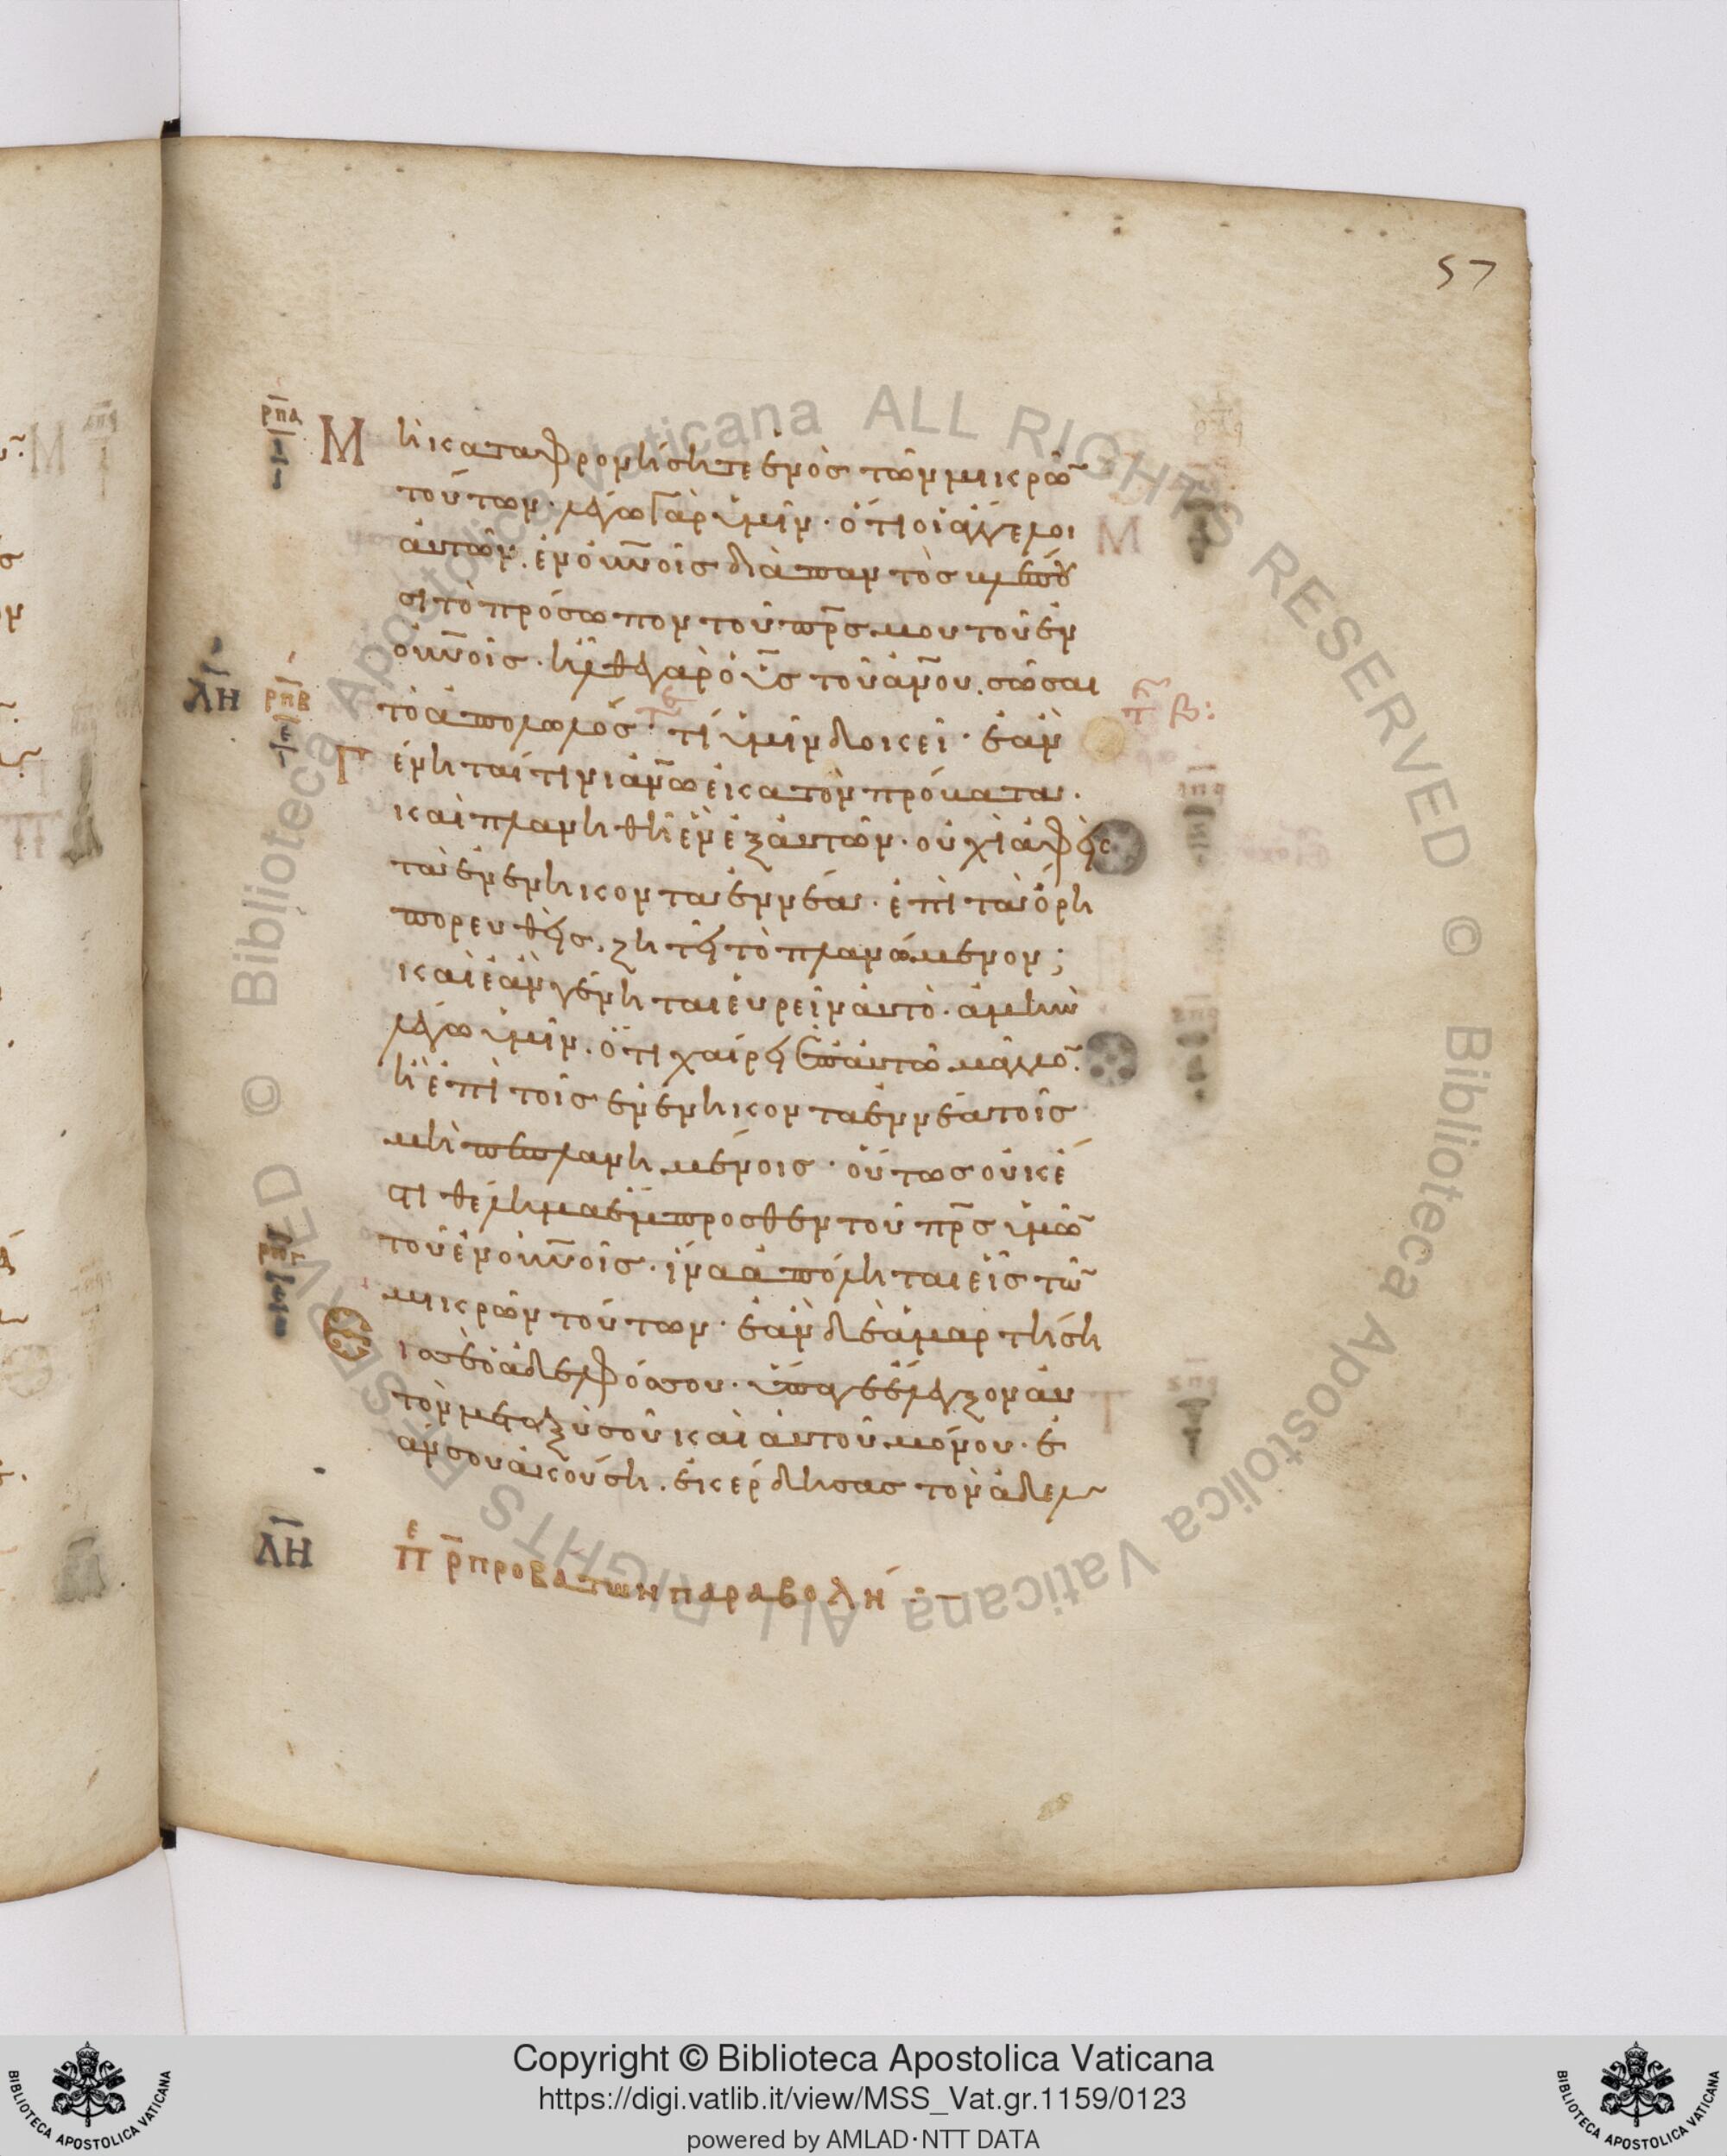 57
ρπα
Μὴ καταφρονήσητε ἑνὸς τῶν μικρῶ̄
τούτων· λέγω γὰρ ὑμῖν· ὅτι οἱ ἄγγελοι
αὐτῶν. ἐν οὐν̄οῖς διὰ παντὸς βλέπου
σι τὸ πρόσωπον τοῦ πρ̄ς μου τοῦ ἐν
οὐν̄οῖς. ἦλθε γὰρ ὁ ῡς τοῦ αν̄ου. σῶσαι
ΛΗ ρπβ
τὸ ἀπολωλός· τί ὑμῖν δοκεῖ· ἐὰν
γένηταί τινι αν̄ω ἑκατὸν πρόβατα.
καὶ πλανηθῇ ἓν ἐξ αὐτῶν· οὐχὶ ἀφεὶς
τὰ ἐνενηκονταεννέα· ἐπὶ τὰ ὄρη
πορευθεὶς. ζητεῖ τὸ πλανώμενον;
καὶ ἐὰν γένηται εὑρεῖν αὐτὸ· ἀμὴν
λέγω ὑμῖν. ὅτι χαίρει ἐπ αὐτῶ μᾶλλο̄.
ἢ ἐπὶ τοῖς ἐνενηκονταεννέα τοῖς
μὴ πεπλανημένοις· οὕτως οὐκ ἔ
στι θέλημα ἔμπροσθεν τοῦ πρ̄ς ὑμῶ̄
τοῦ ἐν οὐν̄οῖς. ἵνα ἀπόληται εἷς τῶ̄
ρπγ
μικρῶν τούτων· ἐὰν δὲ ἁμαρτήση
εἰς σὲ ὁ ἀδελφός σου. ὕπαγε ἔλεγξον αὐ
τὸν μεταξὺ σοῦ καὶ αὐτοῦ μόνου· ἐ
άν σου ἀκούση. ἐκέρδησας τὸν ἀδελ
ΛΗ πε ρ̄ προβάτων παραβολή
Copyright © Biblioteca Apostolica Vaticana
https://digi.vatlib.it/view/MSS_Vat.gr.1159/0123
powered by AMLAD·NTT DATA
BIBLIOTECA APOSTOLICA VATICANA
BIBLIOTECA APOSTOLICA VATICANA
© Biblioteca Apostolica Vaticana ALL RIGHTS RESERVED © Biblioteca Apostolica Vaticana ALL RIGHTS RESERVED